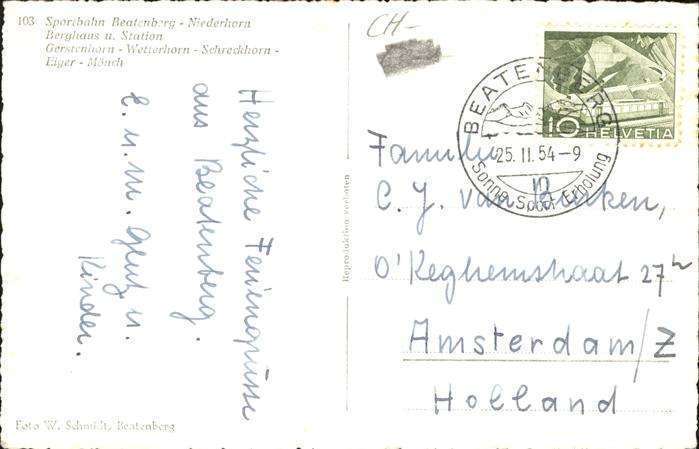 103 Sportbahn Beatenberg - Niederhorn
Berghaus u. Station
Gerstenhorn - Wetterhorn - Schreckhorn -
Eiger - Mönch
CH-
Herzliche Feriengrüsse
aus Beatenberg.
E. u. M. Glutz u.
Kinder.
Reproduktion verboten
BEATENBERG
25. II. 54-9
Sonne Sport Erholung
10 HELVETIA
Familie
C. J. van Burken,
O'Keghemstraat 27 h
Amsterdam/Z
Holland
Foto W. Schmidt, Beatenberg